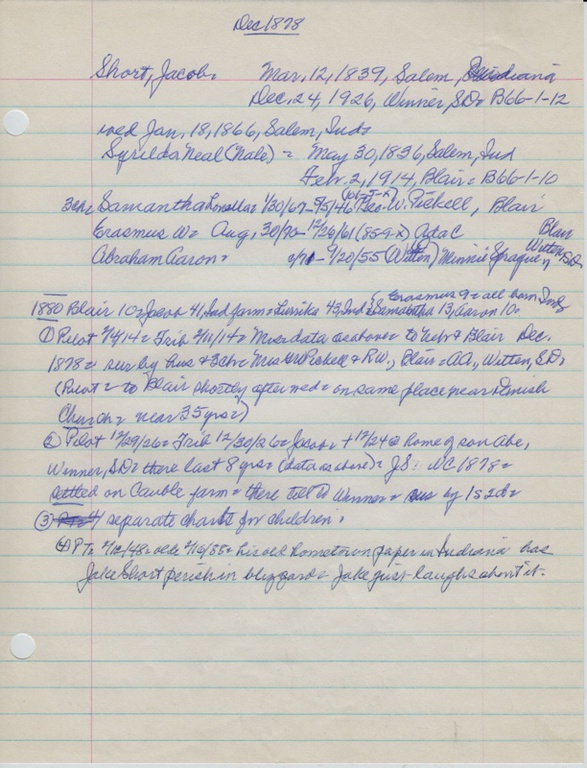 Dec 1878
Short, Jacob = Mar, 12, 1839, Salem, Indiana
Dec, 24, 1926, Winner, SD = B66-1-12
wed Jan, 18, 1866, Salem, Ind =
Syrilda Neal (Nale) = May 30, 1836, Salem, Ind
Feb. 2, 1914, Blair = B66-1-10
3ch = Samantha = 1/30/67 - 9/5/46 Geo W. Pickell, Blair
Erasmus W = Aug, 30/70 - 12/26/61 (85-9-X) Ada C Blair
Abraham Aaron = - 9/20/55 (Witten) Minnie Sprague, Witten, SD
(Erasmus 9 = all born Ind
1880 Blair 10 = Jacob 41, Ind farm = 43, Ind = Samantha 13, Aaron 10 =
① Pilot = Trib = Mrs = data as above = to Nebr & Blair Dec.
1878 = sur by hus & 3ch = Mrs GW Pickell & RW., Blair = AA., Witten, SD =
(Pilot = to Blair shortly after wed = on same place near Danish
Church = near 35 yrs =)
② Pilot 12/29/26 = Trib 12/30/26 = Jacob + 12/24 @ home of son Abe,
Winner, SD = there last 8 yrs = (data as above) = JS: WC 1878 =
settled on Cauble farm = there till to Winner = sur by 1s 2d =
③ separate charts for children.
④ PTr = his old hometown paper in Indiana has
Jake Short perish in blizzard = Jake just laughs about it.